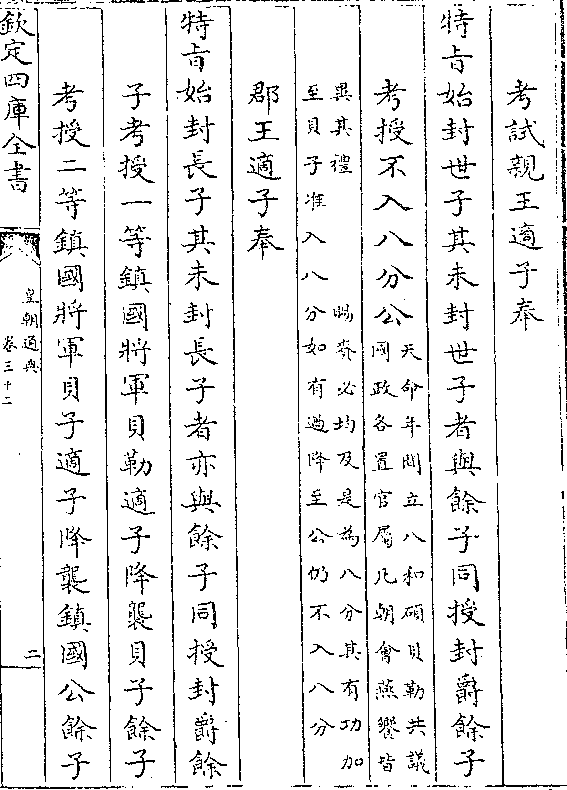 考試親王適子奉
特旨始封世子其未封世子者與餘子同授封爵餘子
考授不入八分公
天命年間立八和碩貝勒共議
國政各置官屬凡朝會燕饗皆
與其禮 賜賚必均及是為八分其有功加
至貝子准入八分如有過降至公仍不入八分
郡王適子奉
特旨始封長子其未封長子者亦與餘子同授封爵餘
子考授一等鎮國將軍貝勒適子降襲貝子餘子
考授二等鎮國將軍貝子適子降襲鎮國公餘子
欽定四庫全書
皇朝通典
卷三十二
二